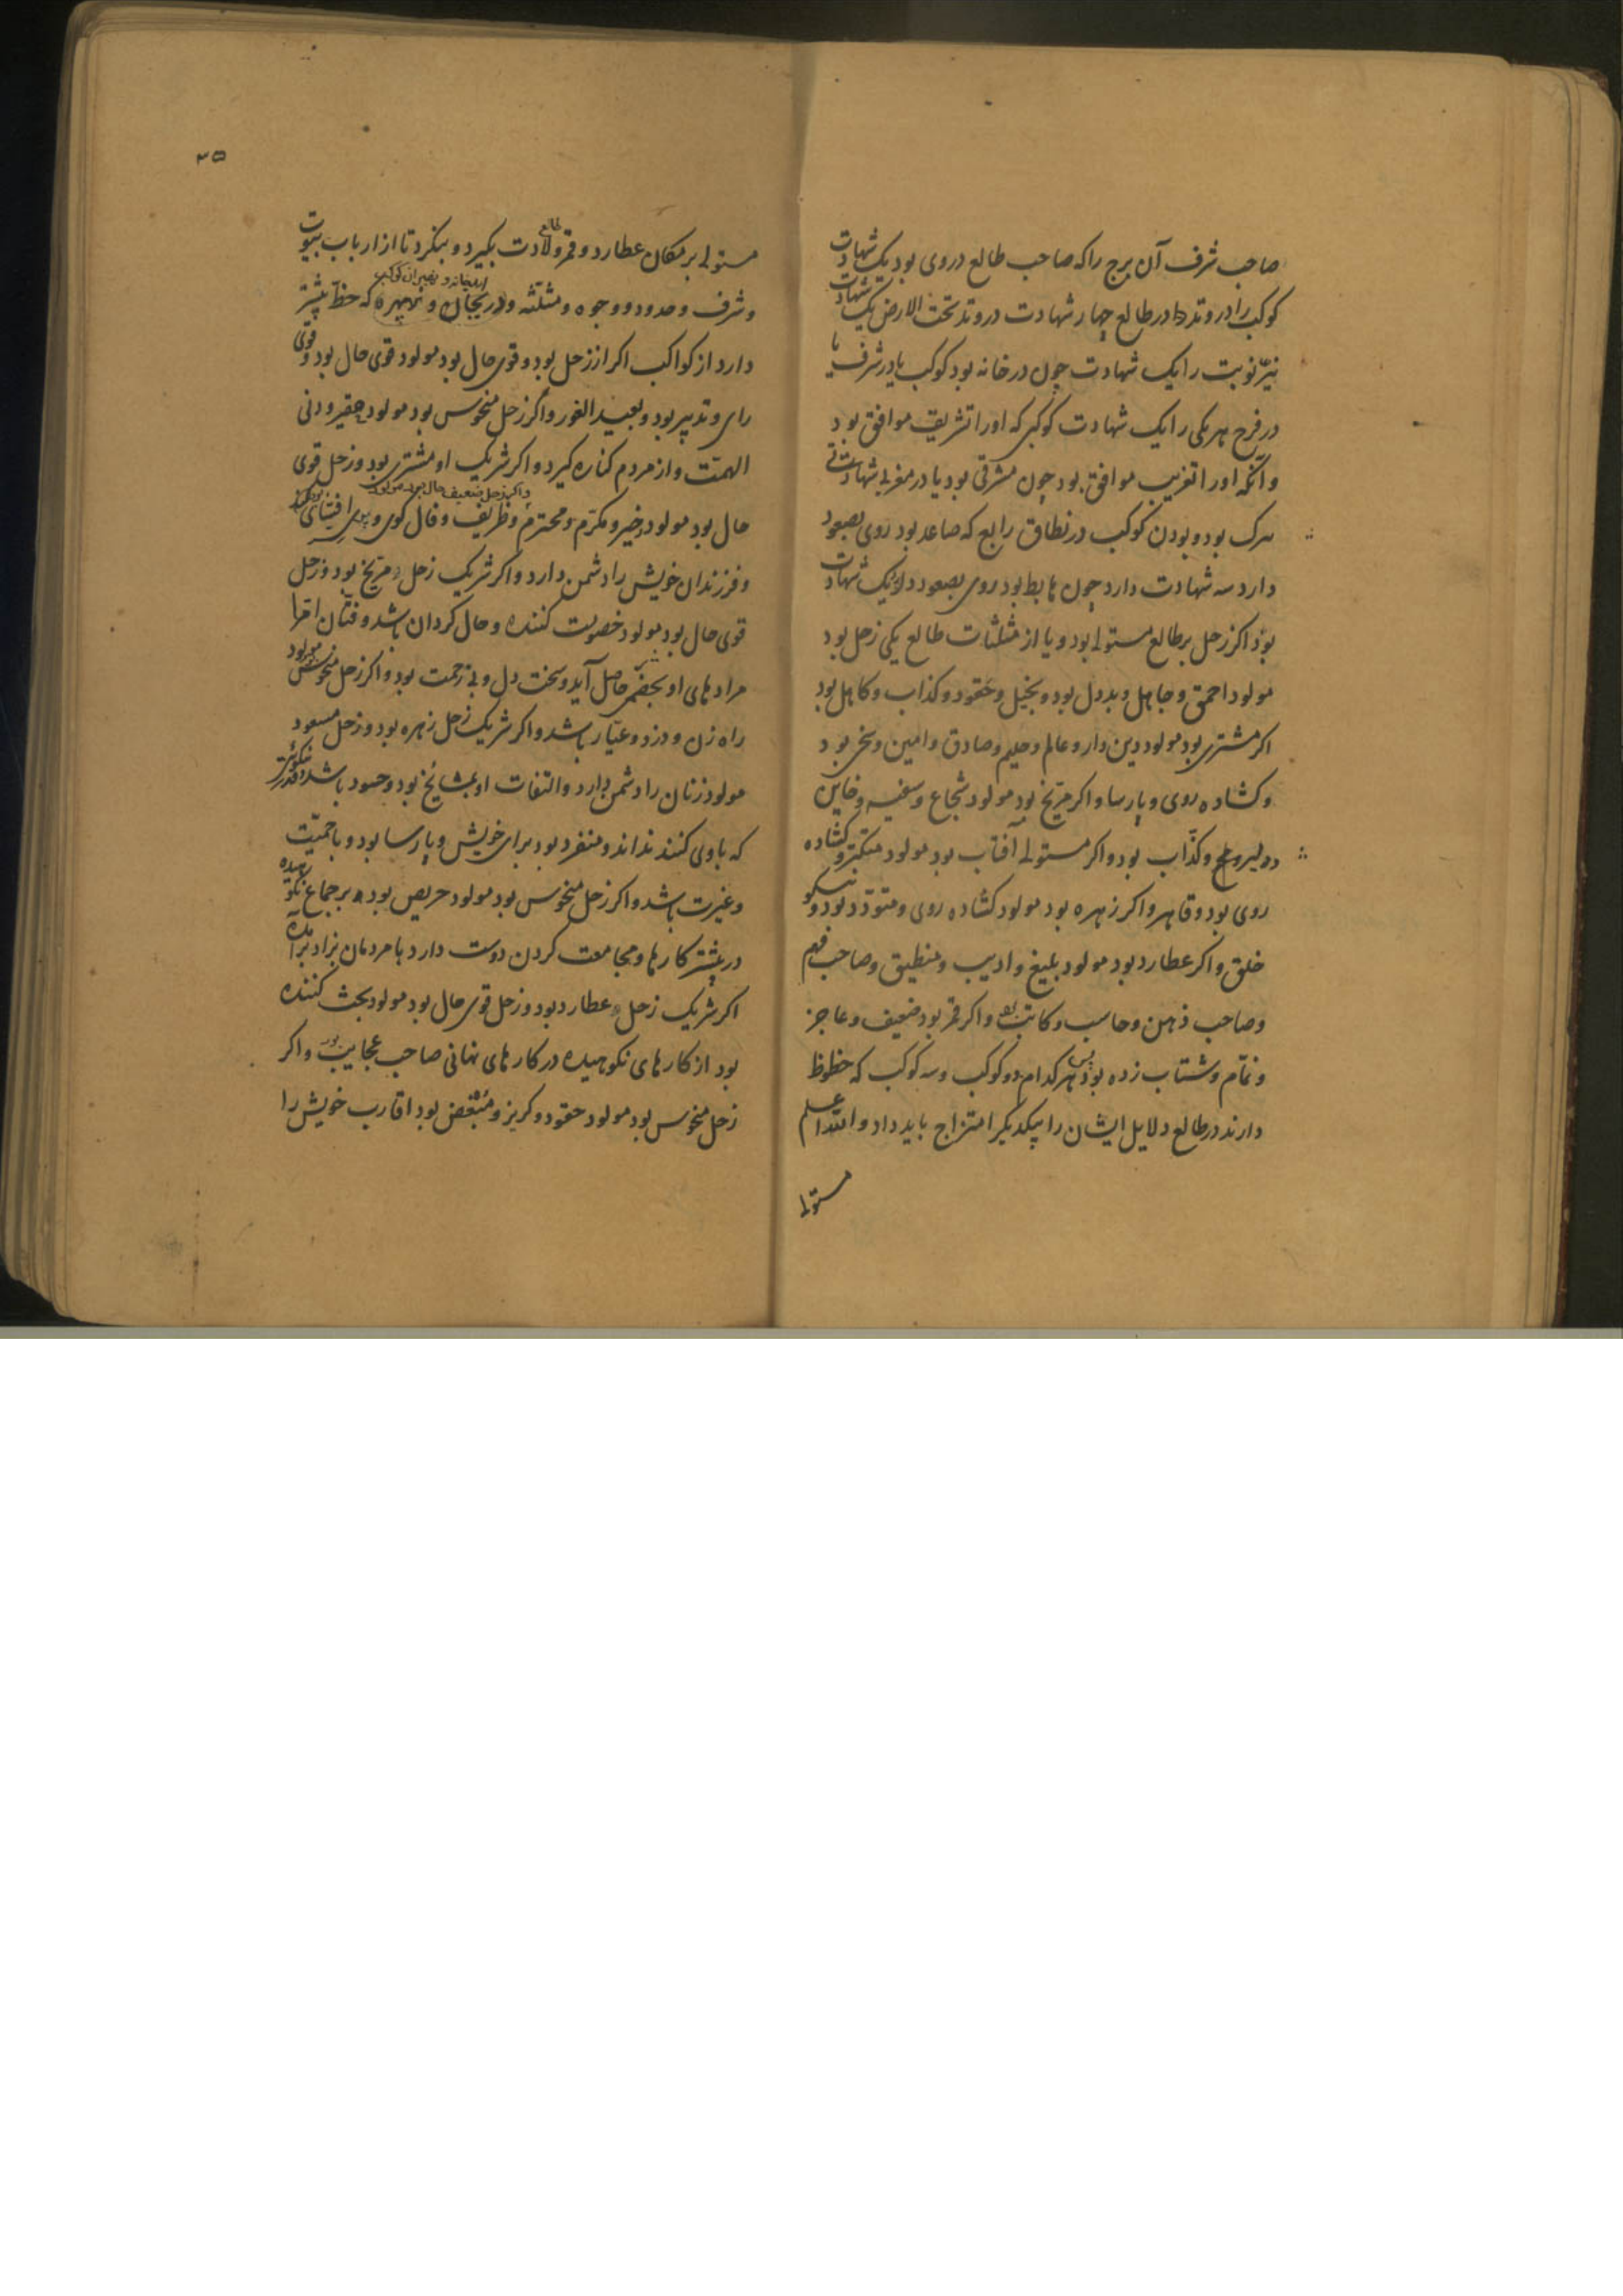 صاحب شرف آن برج را که صاحب طالع دروی بود یک شهادت
کوکب را در وتد در طالع چهار شهادت در وتد تحت الارض یک شهادت
نیّر نوبت را یک شهادت چون در خانه بود کوکب یا در شرف یا
در فرح هر یکی را یک شهادت کوکبی که او را تشریق موافق بود
و آنکه او را تغریب موافق بود چون مشرقی بود یا در مغربی شهادتی
بود و بودن کوکب در نطاق رابع که صاعد بود روی بصعود
دارد سه شهادت دارد چون هابط بود روی بصعود دارد یک شهادت
بود اکر زحل بر طالع مستولی بود و یا از مثلثات طالع یکی زحل بود
مولود احمق و جاهل و بددل بود و بخیل و حقود و کذاب و کاهل بود
اکر مشتری بود مولود دین دار و عالم و حلیم و صادق و امین و سخی بود
و کشاده روی و پارسا و اکر مریخ بود مولود شجاع و سفیه و خاین
و دلیر و کذّاب بود و اکر مستولی آفتاب بود مولود متکبر و کشاده
روی بود و قاهر و اکر زهره بود مولود کشاده روی و متودّد بود و نیکو
خلق و اکر عطارد بود مولود بلیغ و ادیب و منطیق و صاحب فهم
و صاحب ذهن و حاسب و کاتب بود و اکر قمر بود ضعیف و عاجز
و نمّام و شتاب زده بود پس هر کدام دو کوکب و سه کوکب که حظوظ
دارند در طالع دلایل ایشان را بیکدیکر امتزاج باید داد و الله اعلم
مستولی
۳۵
مستولی بر مکان عطارد و قمر و طالع ولادت بکیرد و بنکرد تا از ارباب بیوت
و شرف و حدود و وجوه و مثلثه و دریجان و نهبهره که حظّ بیشتر
دارد از کواکب اکر از زحل بود و قوی حال بود مولود قوی حال بود و قوی
رای و تدبیر بود و بعید الغور و اکر زحل منحوس بود مولود حقیر و دنی
الهمّت و از مردم کناره کیرد و اکر شریک او مشتری بود و زحل قوی
واکر زحل ضعیف حال بود مولود
حال بود مولود خیر و مکرّم و محترم و ظریف و فال کوی و
و فرزندان خویش را دشمن دارد و اکر شریک زحل مریخ بود و زحل
قوی حال بود مولود خصومت کننده و حال کردان باشد و فتّان
مرادهای او حاصل آید و سخت دل و بی رحمت بود و اکر زحل منحوس بود مولود
راه زن و دزد و عیّار باشد و اکر شریک زحل زهره بود و زحل مسعود
مولود زنان را دشمن دارد و التفات او بمشایخ بود و حسود باشد و قدر نیکوئی
که باوی کنند نداند و منفرد بود برای خویش و پارسا بود و با حمیّت
و غیرت باشد و اکر زحل منحوس بود مولود حریص بود بر جماع نکوهیده
در بیشتر کارها و مجامعت کردن دوست دارد با مردمان بزاد برآمده
اکر شریک زحل عطارد بود و زحل قوی حال بود مولود بحث کننده
بود از کارهای نکوهیده در کارهای نهانی صاحب عجایب بود و اکر
زحل منحوس بود مولود حقود و کربز و مبغض بود اقارب خویش را